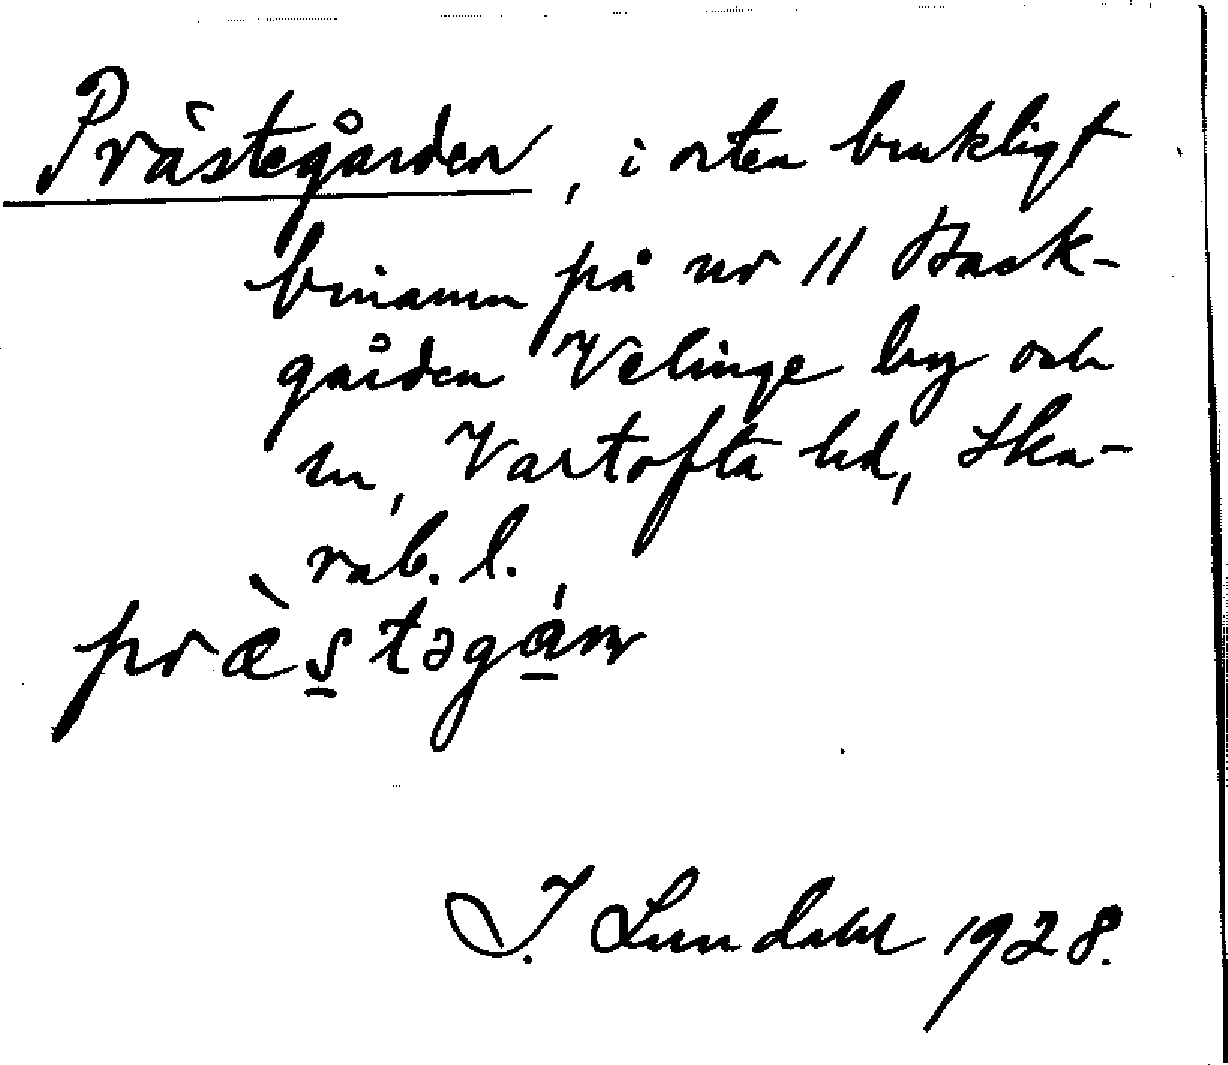 Prästegården, i orten brukligt
binamn på nr 11 Stack-
gården Velinge by och
sn, Vartofta hd, Ska-
rab. l.
præ̀s̲təgá̲ɳ
I. Lundahl 1928.